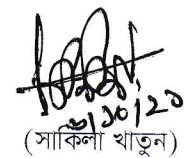 ৬/১০/২১
(সাকিলা খাতুন)